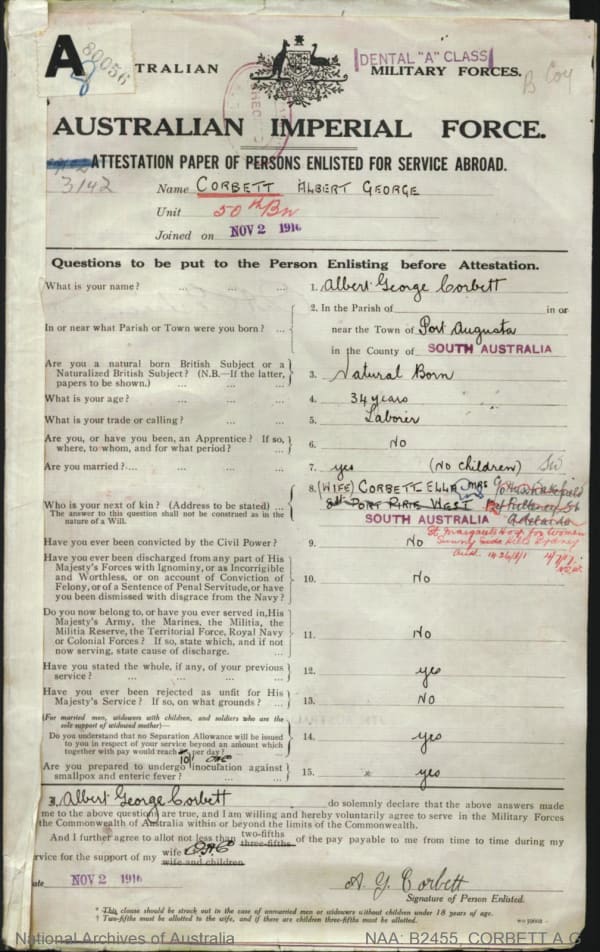 A
80056
TRALIAN
DENTAL "A" CLASS
MILITARY FORCES.
B Coy
AUSTRALIAN IMPERIAL FORCE.
ATTESTATION PAPER OF PERSONS ENLISTED FOR SERVICE ABROAD.
3142
Name CORBETT ALBERT GEORGE
Unit 50th Bn
Joined on NOV 2 1916
Questions to be put to the Person Enlisting before Attestation.
What is your name? ... ... ... 1. Albert George Corbett
2. In the Parish of in or
In or near what Parish or Town were you born? ... near the Town of Port Augusta
in the County of SOUTH AUSTRALIA
Are you a natural born British Subject or a
Naturalized British Subject? (N.B.—If the latter, 3. Natural Born
papers to be shown.) ... ... ...
What is your age? ... ... ... 4. 34 years
What is your trade or calling? ... ... 5. Laborer
Are you, or have you been, an Apprentice? If so, 6. No
where, to whom, and for what period? ...
Are you married?.... ... ... ... 7. yes (No children)
8. (WIFE) CORBETT ELLA MRS
Who is your next of kin? (Address to be stated) ... PORT PIRIE WEST
The answer to this question shall not be construed as in the SOUTH AUSTRALIA Adelaide
nature of a Will.
St Margarets Hosp for Women
Sydney
Have you ever been convicted by the Civil Power? 9. No
Have you ever been discharged from any part of His
Majesty's Forces with Ignominy, or as Incorrigible
and Worthless, or on account of Conviction of 10. No
Felony, or of a Sentence of Penal Servitude, or have
you been dismissed with disgrace from the Navy?
Do you now belong to, or have you ever served in, His
Majesty's Army, the Marines, the Militia, the
Militia Reserve, the Territorial Force, Royal Navy 11. No
or Colonial Forces? If so, state which, and if not
now serving, state cause of discharge. ...
Have you stated the whole, if any, of your previous 12. yes
service? ... ... ... ...
Have you ever been rejected as unfit for His 13. No
Majesty's Service? If so, on what grounds? ...
(For married men, widowers with children, and soldiers who are the
sole support of widowed mother)—
Do you understand that no Separation Allowance will be issued 14. yes
to you in respect of your service beyond an amount which
together with pay would reach per day? ...
10/-
Are you prepared to undergo inoculation against 15. yes
smallpox and enteric fever? ... ...
I, Albert George Corbett do solemnly declare that the above answers made
me to the above questions are true, and I am willing and hereby voluntarily agree to serve in the Military Forces
the Commonwealth of Australia within or beyond the limits of the Commonwealth.
And I further agree to allot not less than two-fifths three-fifths of the pay payable to me from time to time during my
rvice for the support of my wife
wife and children
ate NOV 2 1916
A. G. Corbett
Signature of Person Enlisted.
* This clause should be struck out in the case of unmarried men or widowers without children under 18 years of age.
† Two-fifths must be allotted to the wife, and if there are children three-fifths must be allotted.
National Archives of Australia
NAA: B2455, CORBETT A G